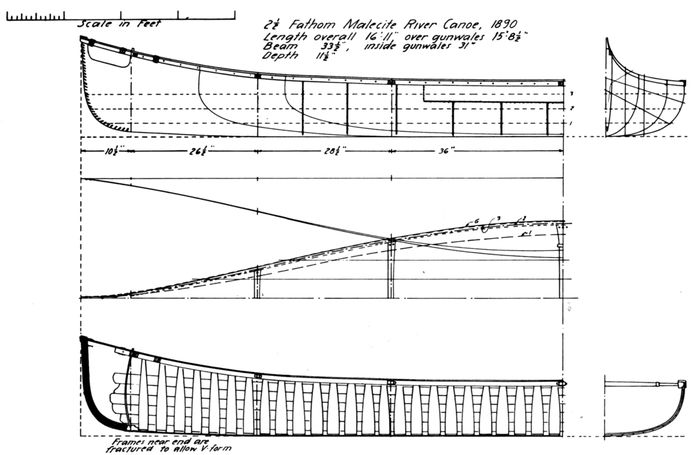 Scale in Feet
2½ Fathom Malecite River Canoe, 1890
Length overall 16'11", over gunwales 15'8½"
Beam 33½", inside gunwales 31"
Depth 11½"
3
2
1
10½" 26½" 28½" 36"
6 3 2
1
Frames near end are
fractured to allow V-form